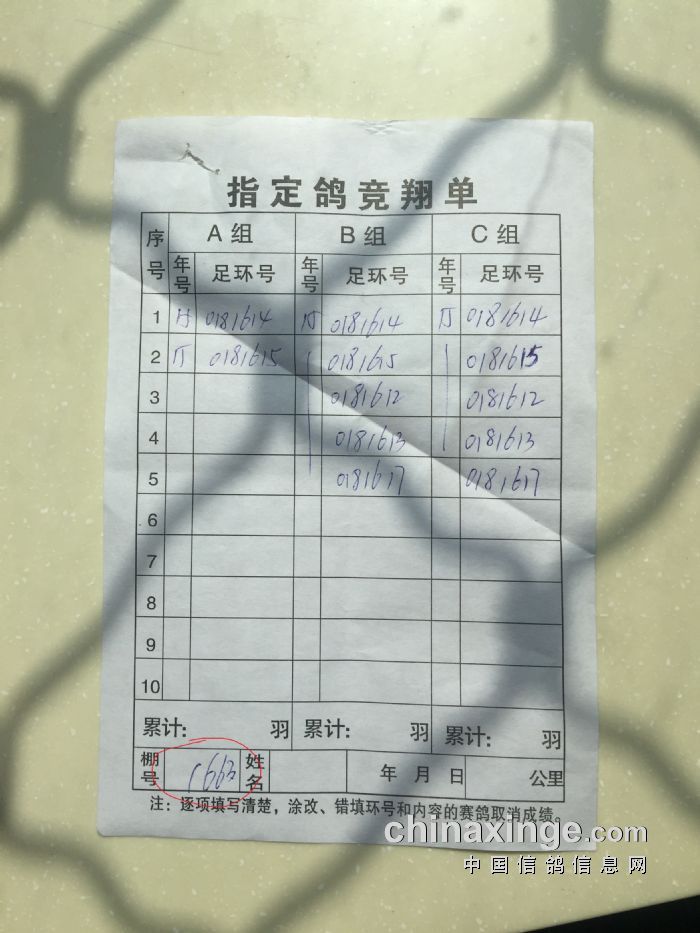 指定鸽竞翔单
序号 A组 B组 C组
年号 足环号 年号 足环号 年号 足环号
1 15 0181614 15 0181614 15 0181614
2 15 0181615 0181615 0181615
3 0181612 0181612
4 0181613 0181613
5 0181617 0181617
6
7
8
9
10
累计: 羽 累计: 羽 累计: 羽
棚号 1663 姓名 年 月 日 公里
注:逐项填写清楚,涂改、错填环号和内容的赛鸽取消成绩。
chinaxinge.com
中国信鸽信息网